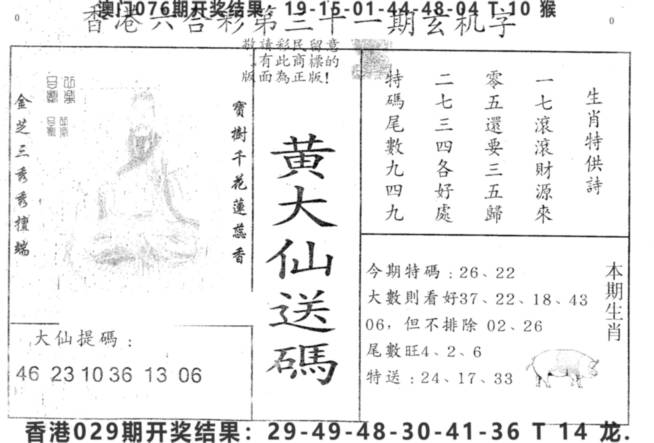 澳门076期开奖结果：19-15-01-44-48-04 T 10 猴
香港六合彩第三十一期玄机字
敬請彩民留意
有此商標的
版面為正版！
金芝三秀秀擅端
寶樹千花蓮蕊香
黄大仙送碼
生肖特供詩
一七滾滾財源來
零五還要三五歸
二七三四各好處
特碼尾數九四九
大仙提碼：
46 23 10 36 13 06
今期特碼：26、22
大數則看好37、22、18、43
06，但不排除 02、26
尾數旺4、2、6
特送：24、17、33
本期生肖
香港029期开奖结果：29-49-48-30-41-36 T 14 龙.